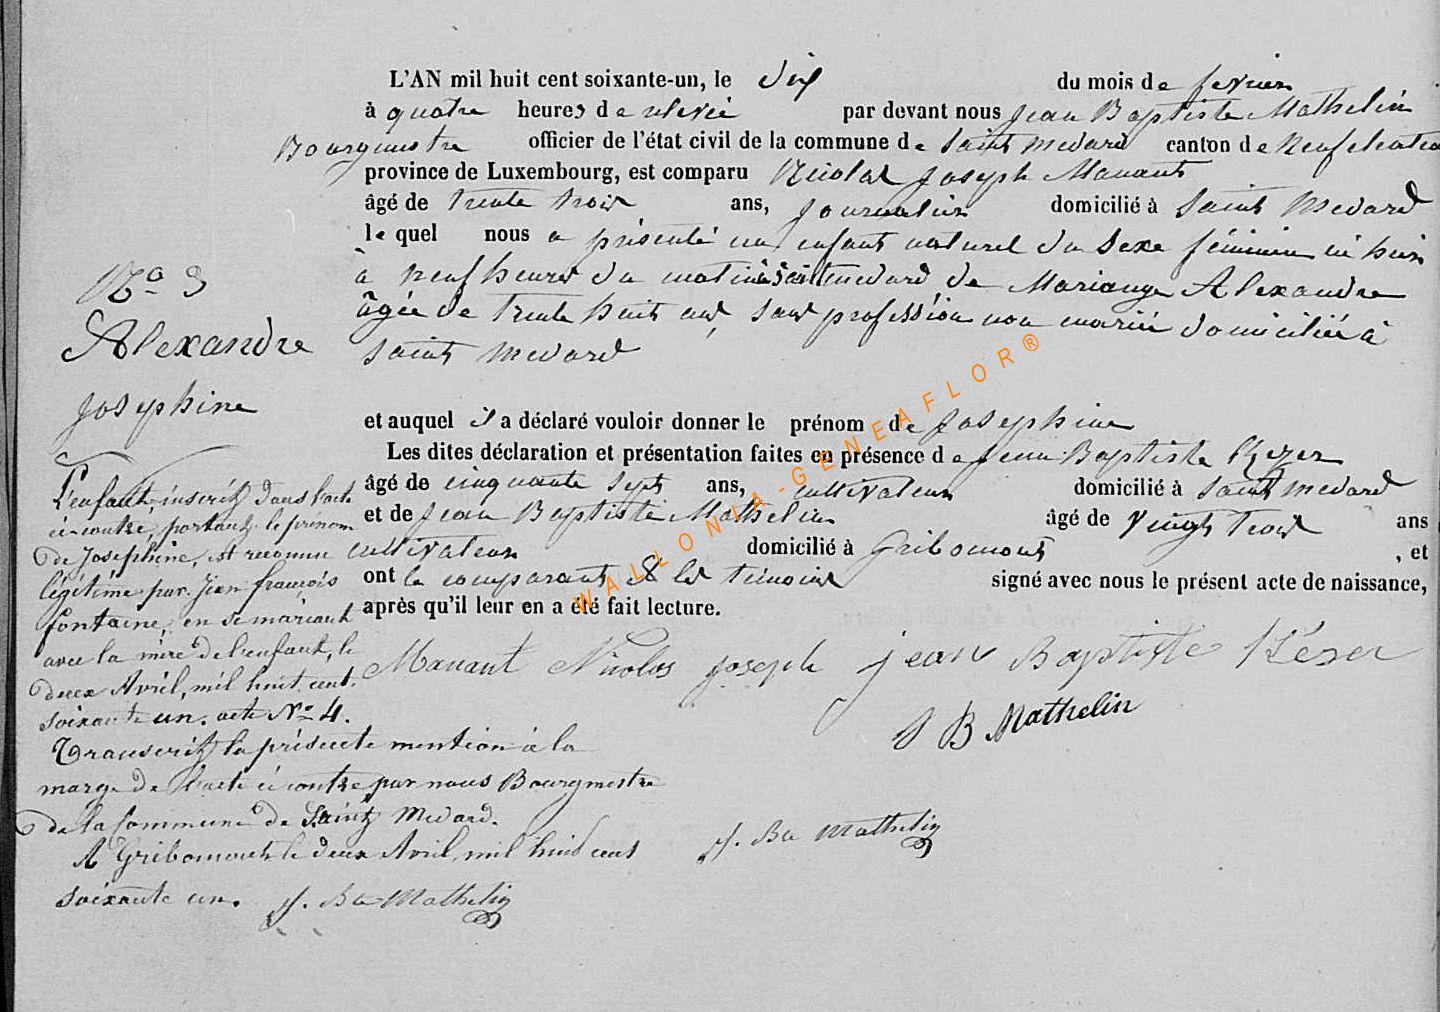 L'AN mil huit cent soixante-un, le dix du mois de fevrier
à quatre heures de relevée par devant nous Jean Baptiste Mathelin
Bourgmestre officier de l'état civil de la commune de Saint Medard canton de Neufchateau
province de Luxembourg, est comparu Nicolas Joseph Manant
âgé de trente trois ans, journalier domicilié à Saint Medard
le quel nous a présenté un enfant naturel du sexe féminin né hier
à neuf heures du matin à Saint medard de Mariange Alexandre
âgée de trente huit ans, sans profession non mariée domiciliée à
Saint Medard
et auquel il a déclaré vouloir donner le prénom de Josephine
Les dites déclaration et présentation faites en présence de Jean Baptiste Kezer
âgé de cinquante sept ans, cultivateur domicilié à Saint medard
et de Jean Baptiste Mathelin âgé de vingt trois ans
cultivateur domicilié à Gribomont , et
ont le comparant & les témoins signé avec nous le présent acte de naissance,
après qu'il leur en a été fait lecture.
Manant Nicolas joseph jean Baptiste Kézer
J B Mathelin
J. Bte Mathelin
No 3
Alexandre
Josephine
L'enfant, inscrit dans l'acte
ci-contre, portant le prénom
de Josephine, est reconnu
légitime par Jean françois
fontaine, en se mariant
avec la mère de l'enfant, le
deux Avril, mil huit cent
soixante un. acte No 4.
Transcrit la présente mention à la
marge de l'acte ci contre par nous Bourgmestre
de la Commune de Saint Medard.
A Gribomont le deux Avril, mil huit cent
soixante un. J. Bte Mathelin
WALLONIA-GENEAFLOR®